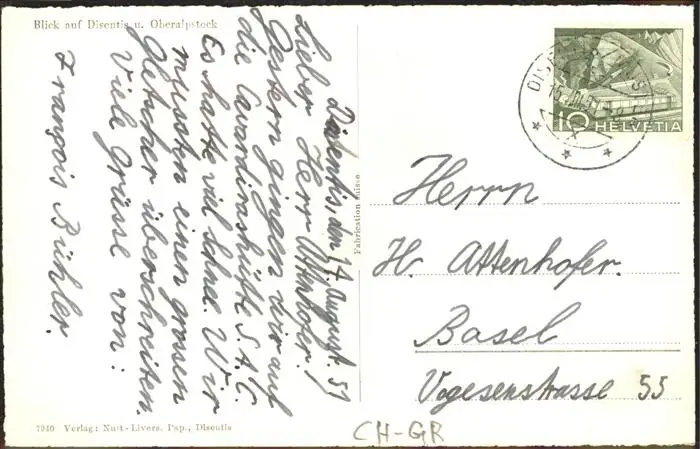 Blick auf Disentis u. Oberalpstock
Disentis, den 14. August. 51
Lieber Herr Attenhofer.
Gestern gingen wir auf
die Cavardirashütte S.A.C.
Es hatte viel Schnee. Wir
mussten einen grossen
Gletscher überschreiten.
Viele Grüsse von:
François Bühler.
7940 Verlag: Nutt-Livers. Pap., Disentis
Fabrication suisse
10 HELVETIA
Herrn
H. Attenhofer.
Basel
Vogesenstrasse 55
CH-GR